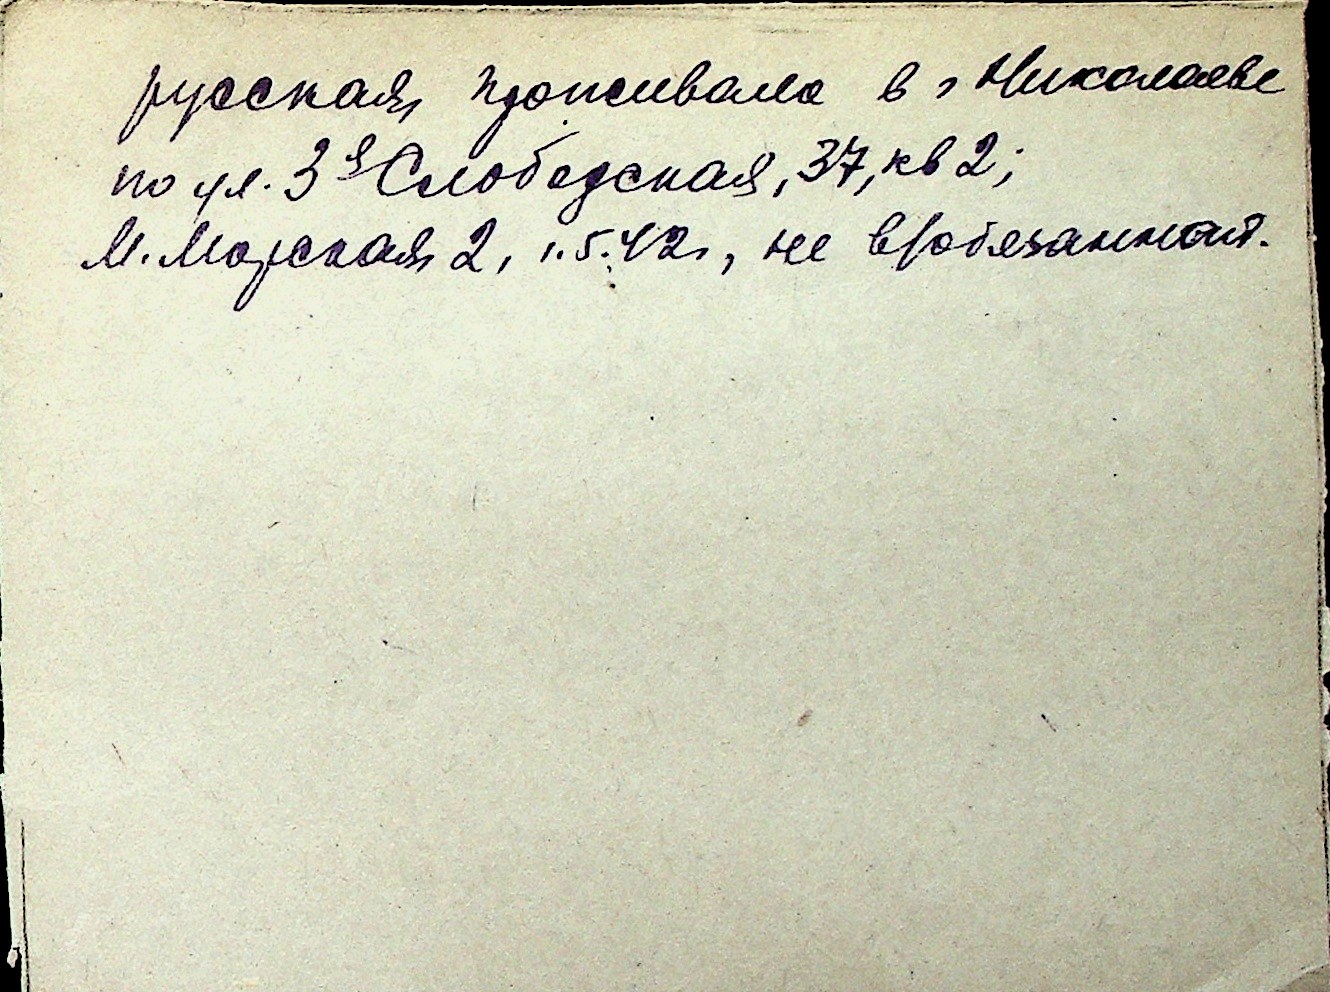 русская, проживала в г. Николаеве
по ул. 3я Слободская, 37, кв 2;
М. Морская 2, 1.5.42г, не в/обязанной.